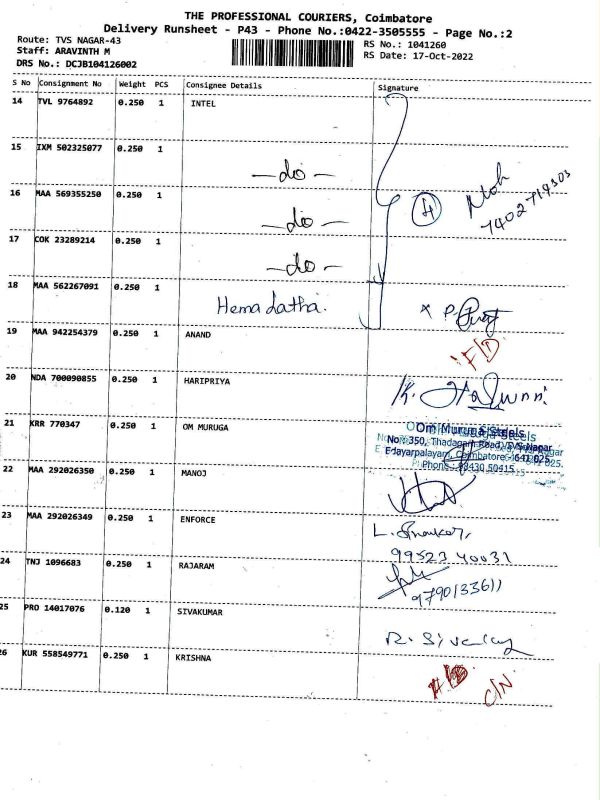 THE PROFESSIONAL COURIERS, Coimbatore
Delivery Runsheet - P43 - Phone No.:0422-3505555 - Page No.:2
Route: TVS NAGAR-43
Staff: ARAVINTH M
DRS No.: DCJB104126002
RS No.: 1041260
RS Date: 17-Oct-2022
S No Consignment No Weight PCS Consignee Details Signature
14 TVL 9764892 0.250 1 INTEL
15 IXM 502325077 0.250 1
-do-
16 MAA 569355250 0.250 1
-do-
7402719303
17 COK 23289214 0.250 1
-do-
18 MAA 562267091 0.250 1
Hema Latha.
19 MAA 942254379 0.250 1 ANAND
20 NDA 700090855 0.250 1 HARIPRIYA
21 KRR 770347 0.250 1 OM MURUGA
Om Muruga Steels
No. 350, Thadagam Road, TVS Nagar
Edayarpalayam, Coimbatore - 641 025
Phone : 93430 50415
22 MAA 292026350 0.250 1 MANOJ
23 MAA 292026349 0.250 1 ENFORCE
99523 40031
24 TNJ 1096683 0.250 1 RAJARAM
9790133611
25 PRO 14017076 0.120 1 SIVAKUMAR
26 KUR 558549771 0.250 1 KRISHNA
C/N